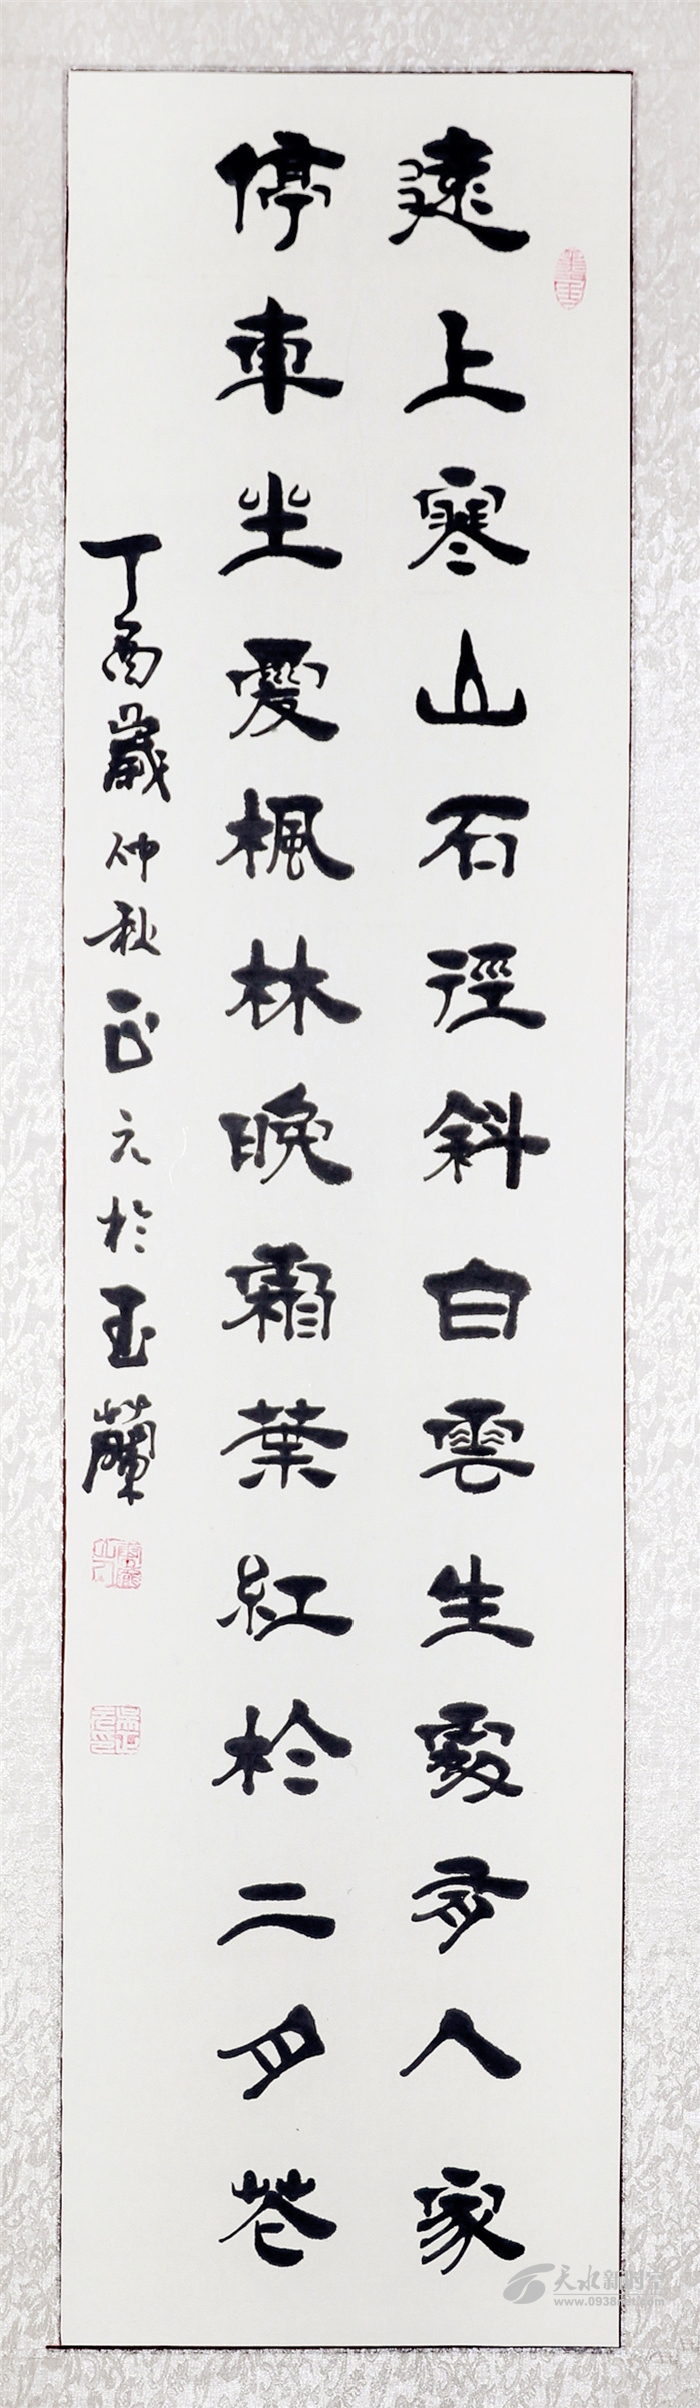 遠上寒山石徑斜白雲生處有人家
停車坐愛楓林晚霜葉紅於二月花
丁酉歲仲秋正元於玉蘭
天水新时空
www.0938net.com